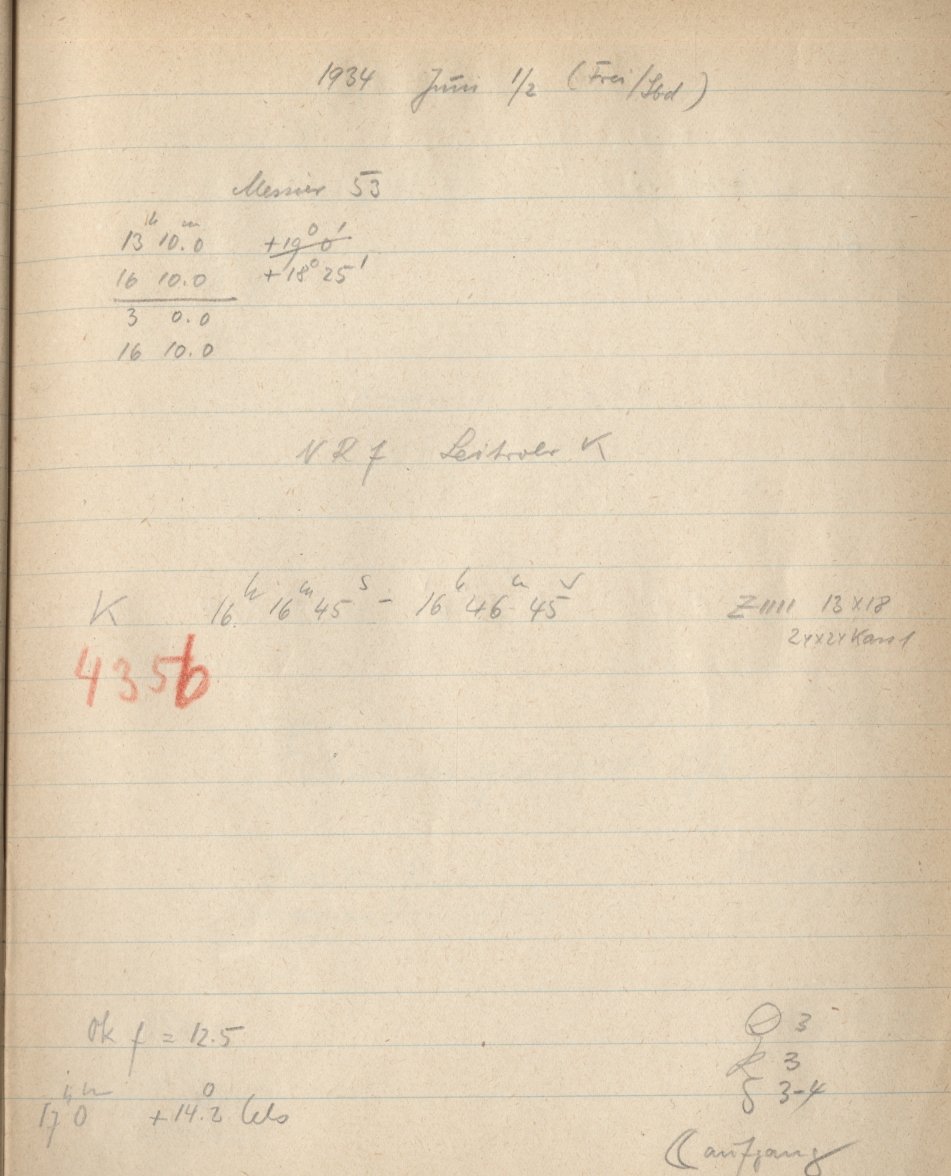 1934 Juni 1/2 (Frei/Sbd)
Messier 53
13ʰ 10.0ᵐ +19° 0'
16 10.0 +18° 25'
3 0.0
16 10.0
N R f Leitrohr K
K 16ʰ 16ᵐ 45ˢ - 16ʰ 46ᵐ 45ˢ Z 13x18
24x24 Kass
4356
Ok f = 12.5
Q 3
R 3
17ʰ 0ᵐ +14.2° Cels
S 3-4
☾ aufgang